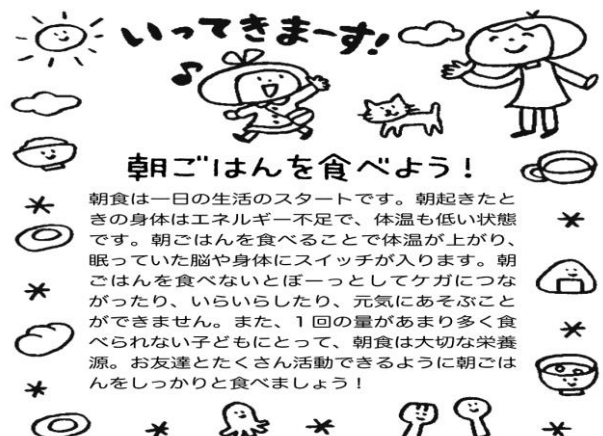 いってきまーす!
朝ごはんを食べよう！
朝食は一日の生活のスタートです。朝起きたと
きの身体はエネルギー不足で、体温も低い状態
です。朝ごはんを食べることで体温が上がり、
眠っていた脳や身体にスイッチが入ります。朝
ごはんを食べないとぼーっとしてケガにつな
がったり、いらいらしたり、元気にあそぶこと
ができません。また、1回の量があまり多く食
べられない子どもにとって、朝食は大切な栄養
源。お友達とたくさん活動できるように朝ごは
んをしっかりと食べましょう！